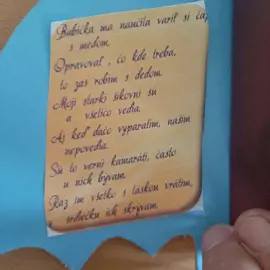 Babička ma naučila variť si čaj
s medom.
Opravovať, čo kde treba,
to zas robím s dedom.
Moji starkí šikovní sú
a všeličo vedia.
Aj keď dačo vyparatím, našim
nepovedia.
Sú to verní kamaráti, často
u nich bývam.
Raz im všetko s láskou vrátim,
ich skrývam.